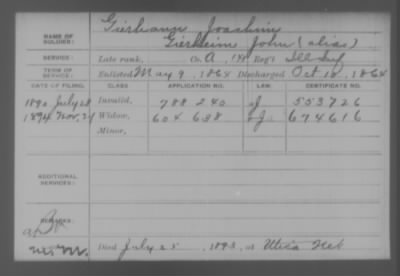 NAME OF SOLDIER: Gierhann Joachim
Gierheim John (alias)
SERVICE: Late rank, Co. A, 141 Reg't Ill Inf
TERM OF SERVICE: Enlisted May 9, 1864 Discharged Oct 10, 1864
DATE OF FILING. CLASS. APPLICATION NO. LAW. CERTIFICATE NO.
1890 July 28 Invalid, 788 240 553726
1894 Nov. 24 Widow, 604 638 674616
Minor,
ADDITIONAL SERVICES:
REMARKS:
Died July 25, 1893, at Utica Neb